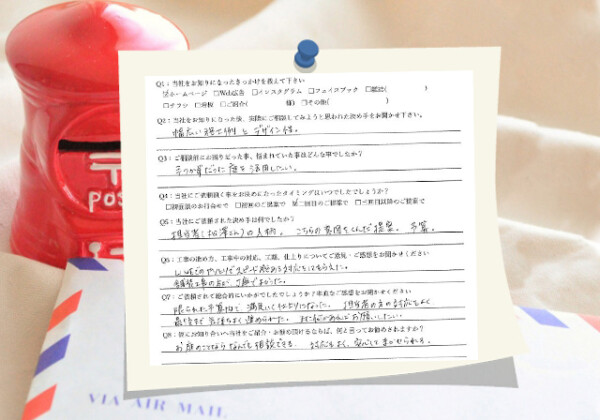 Q1：当社をお知りになったきっかけを教えて下さい
☑ホームページ □Web広告 □インスタグラム □フェイスブック □雑誌( )
□チラシ □看板 □ご紹介( 様) □その他( )
Q2：当社をお知りになった後、実際にご相談してみようと思われた決め手をお聞かせ下さい。
幅広い施工例とデザイン性。
Q3：ご相談前にお困りだった事、悩まれていた事はどんな事でしたか？
庭を活用したい。
Q4：当社にご依頼頂く事をお決めになったタイミングはいつでしたでしょうか？
□初回のご提案で ☑二回目のご提案で □三回目以降のご提案で
Q5：当社にご依頼された決め手は何でしたか？
担当者(松澤さん)の人柄。こちらの意図をくんだ提案。予算。
Q6：工事の進め方、工事中の対応、工期、仕上りについてご意見・ご感想をお聞かせください
LINEでのやりとりでスピード感ある対応をしてもらえた。
Q7：ご依頼されて総合的にいかがでしたでしょうか？率直なご感想をお聞かせください
限られた予算内で満足いく仕上りになった。担当者の方の対応もよく
最後まで気持ちよく進められた。
Q8：皆にお知り合いへ当社をご紹介・お勧め頂けるならば、何と言ってお勧めされますか？
お庭のことならなんでも相談できる。対応もよく、安心してまかせられる。
POS
VIA AIR MAIL